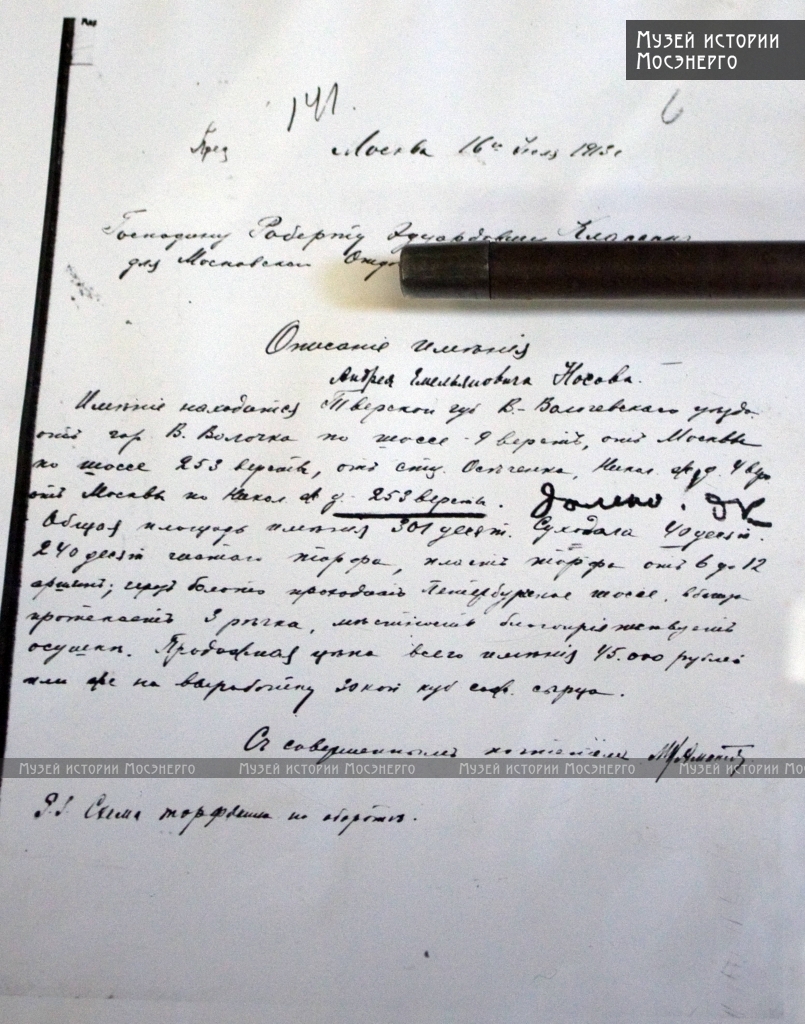 Музей истории
Мосэнерго
141.
6
Москва 16го 1913г
Господину Роберту Эдуардовичу Классону
для Московскаго
Описание имѣнія
Андрея Емельяновича Носова.
Имѣніе находится Тверской губ В.-Волочевскаго уѣзда
отъ гор. В. Волочка по шоссе - 9 верстъ, отъ Москвы
по шоссе 253 верстъ, отъ ст. Осѣченка, Никол. ж д. 4 вер
отъ Москвы по Никол ж д. - 253 верстъ. Далеко. ЭК
Общая площадь имѣнія 301 десят. Суходола 40 десят.
240 десят чистаго торфа, пластъ торфа отъ 6 до 12
аршинъ; черезъ болото проходитъ Петербургское шоссе,
протекаетъ 3 рѣчка, мѣстность благопріятствуетъ
осушки. Продажная цѣна всего имѣнія 45.000 рублей
или же на выработку 30 коп куб саж. сырца.
Съ совершеннымъ почтеніемъ
Музей истории Мосэнерго Музей истории Мосэнерго Музей истории Мосэнерго Музей ис
P.S. Схема торфяника на оборотѣ.